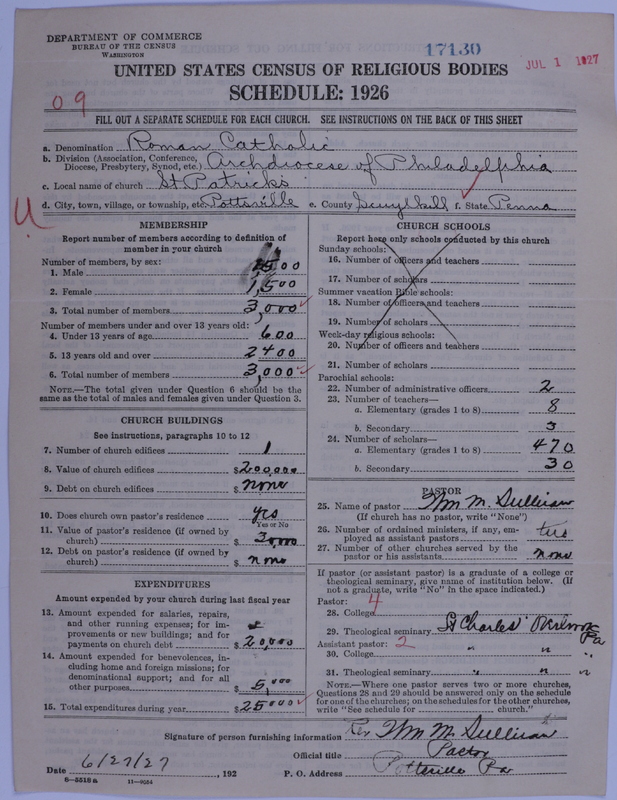 DEPARTMENT OF COMMERCE
BUREAU OF THE CENSUS
WASHINGTON
17130
JUL 1 1927
UNITED STATES CENSUS OF RELIGIOUS BODIES
SCHEDULE: 1926
09
FILL OUT A SEPARATE SCHEDULE FOR EACH CHURCH. SEE INSTRUCTIONS ON THE BACK OF THIS SHEET
a. Denomination Roman Catholic
b. Division (Association, Conference, Diocese, Presbytery, Synod, etc.) Archdiocese of Philadelphia
c. Local name of church St Patricks
d. City, town, village, or township, etc. Pottsville e. County Scuylkill f. State Penna
U.
MEMBERSHIP
Report number of members according to definition of
member in your church
Number of members, by sex:
1. Male 1500
2. Female 1,500
3. Total number of members 3,000
Number of members under and over 13 years old:
4. Under 13 years of age 600
5. 13 years old and over 2400
6. Total number of members 3,000
NOTE.—The total given under Question 6 should be the
same as the total of males and females given under Question 3.
CHURCH BUILDINGS
See instructions, paragraphs 10 to 12
7. Number of church edifices 1
8. Value of church edifices $200,000
9. Debt on church edifices $ none
10. Does church own pastor's residence yes
Yes or No
11. Value of pastor's residence (if owned by
church) $ 30,000
12. Debt on pastor's residence (if owned by
church) $ none
EXPENDITURES
Amount expended by your church during last fiscal year
13. Amount expended for salaries, repairs,
and other running expenses; for im-
provements or new buildings; and for
payments on church debt $ 20,000
14. Amount expended for benevolences, in-
cluding home and foreign missions; for
denominational support; and for all
other purposes $ 5,000
15. Total expenditures during year $ 25000
CHURCH SCHOOLS
Report here only schools conducted by this church
Sunday schools:
16. Number of officers and teachers
17. Number of scholars
Summer vacation Bible schools:
18. Number of officers and teachers
19. Number of scholars
Week-day religious schools:
20. Number of officers and teachers
21. Number of scholars
Parochial schools:
22. Number of administrative officers 2
23. Number of teachers—
a. Elementary (grades 1 to 8) 8
b. Secondary 3
24. Number of scholars—
a. Elementary (grades 1 to 8) 470
b. Secondary 30
PASTOR
25. Name of pastor Wm M. Sullivan
(If church has no pastor, write "None")
26. Number of ordained ministers, if any, em-
ployed as assistant pastors two
27. Number of other churches served by the
pastor or his assistants none
If pastor (or assistant pastor) is a graduate of a college or
theological seminary, give name of institution below. (If
not a graduate, write "No" in the space indicated.)
Pastor: 4
28. College
29. Theological seminary St Charles' Pa
Assistant pastor: 2
30. College " " "
31. Theological seminary " " "
NOTE.—Where one pastor serves two or more churches,
Questions 28 and 29 should be answered only on the schedule
for one of the churches; on the schedules for the other churches,
write "See schedule for church."
Signature of person furnishing information Rev Wm M. Sullivan
Official title Pastor
Date 6/27/27, 192 P. O. Address Pottsville Pa
8—5518a 11—9564